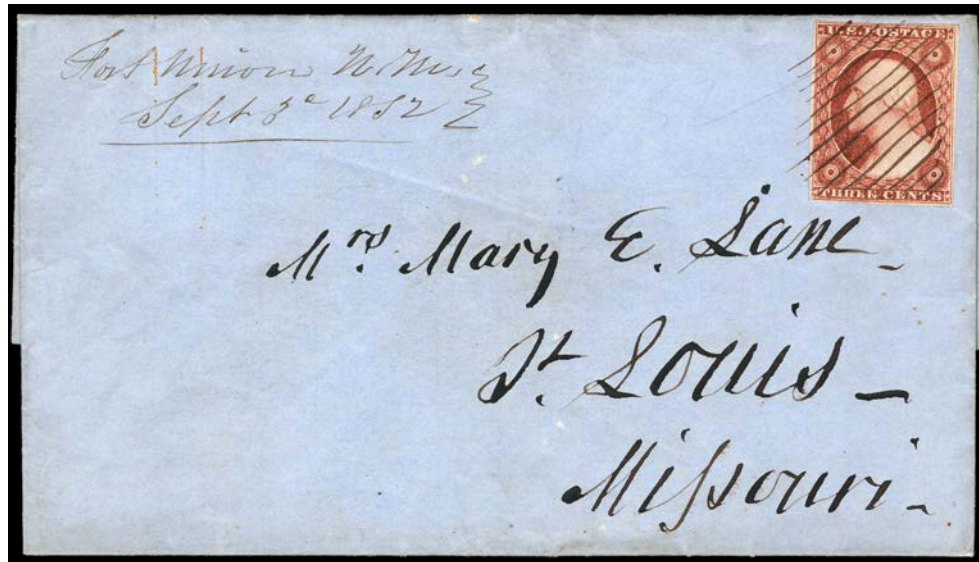 Fort Union N. Mex
Sept 3ᵈ 1852
U.S. POSTAGE
THREE CENTS
Mrs. Mary E. Lane
St. Louis
Missouri